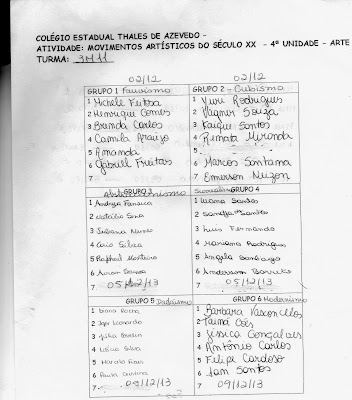 COLÉGIO ESTADUAL THALES DE AZEVEDO -
ATIVIDADE: MOVIMENTOS ARTÍSTICOS DO SÉCULO XX - 4ª UNIDADE - ARTE
TURMA: 3M11
02/12 02/12
GRUPO 1 Fauvismo
1 Michele Feitosa
2 Henrique Gomes
3 Brenda Carlos
4 Camila Araújo
5 Amanda
6 Gabriel Freitas
7
GRUPO 2 - Cubismo
1 Yuri Rodrigues
2 Vagner Souza
3 Kaique Santos
4 Renata Miranda
5
6 Marcos Santana
7 Emerson
GRUPO 3
1 Andreza
2
3 Juliana
4 Caio Silva
5 Raphael Monteiro
6
7 05/12/13
GRUPO 4
1 Luana Santos
2 Santos
3 Luis Fernando
4 Mariana Rodrigues
5 Angela Santiago
6 Anderson Barreto
7 05/12/13
GRUPO 5 Dadaísmo
1 Rocha
2 Igor Leonardo
3 Júlia
4 Silva
5
6 Paula
7 09/12/13
GRUPO 6 Modernismo
1 Barbara Vasconcelos
2 Tainá Cões
3 Jéssica Gonçalves
4 Antônio Carlos
5 Filipe Cardoso
6 Ian Santos
7 09/12/13